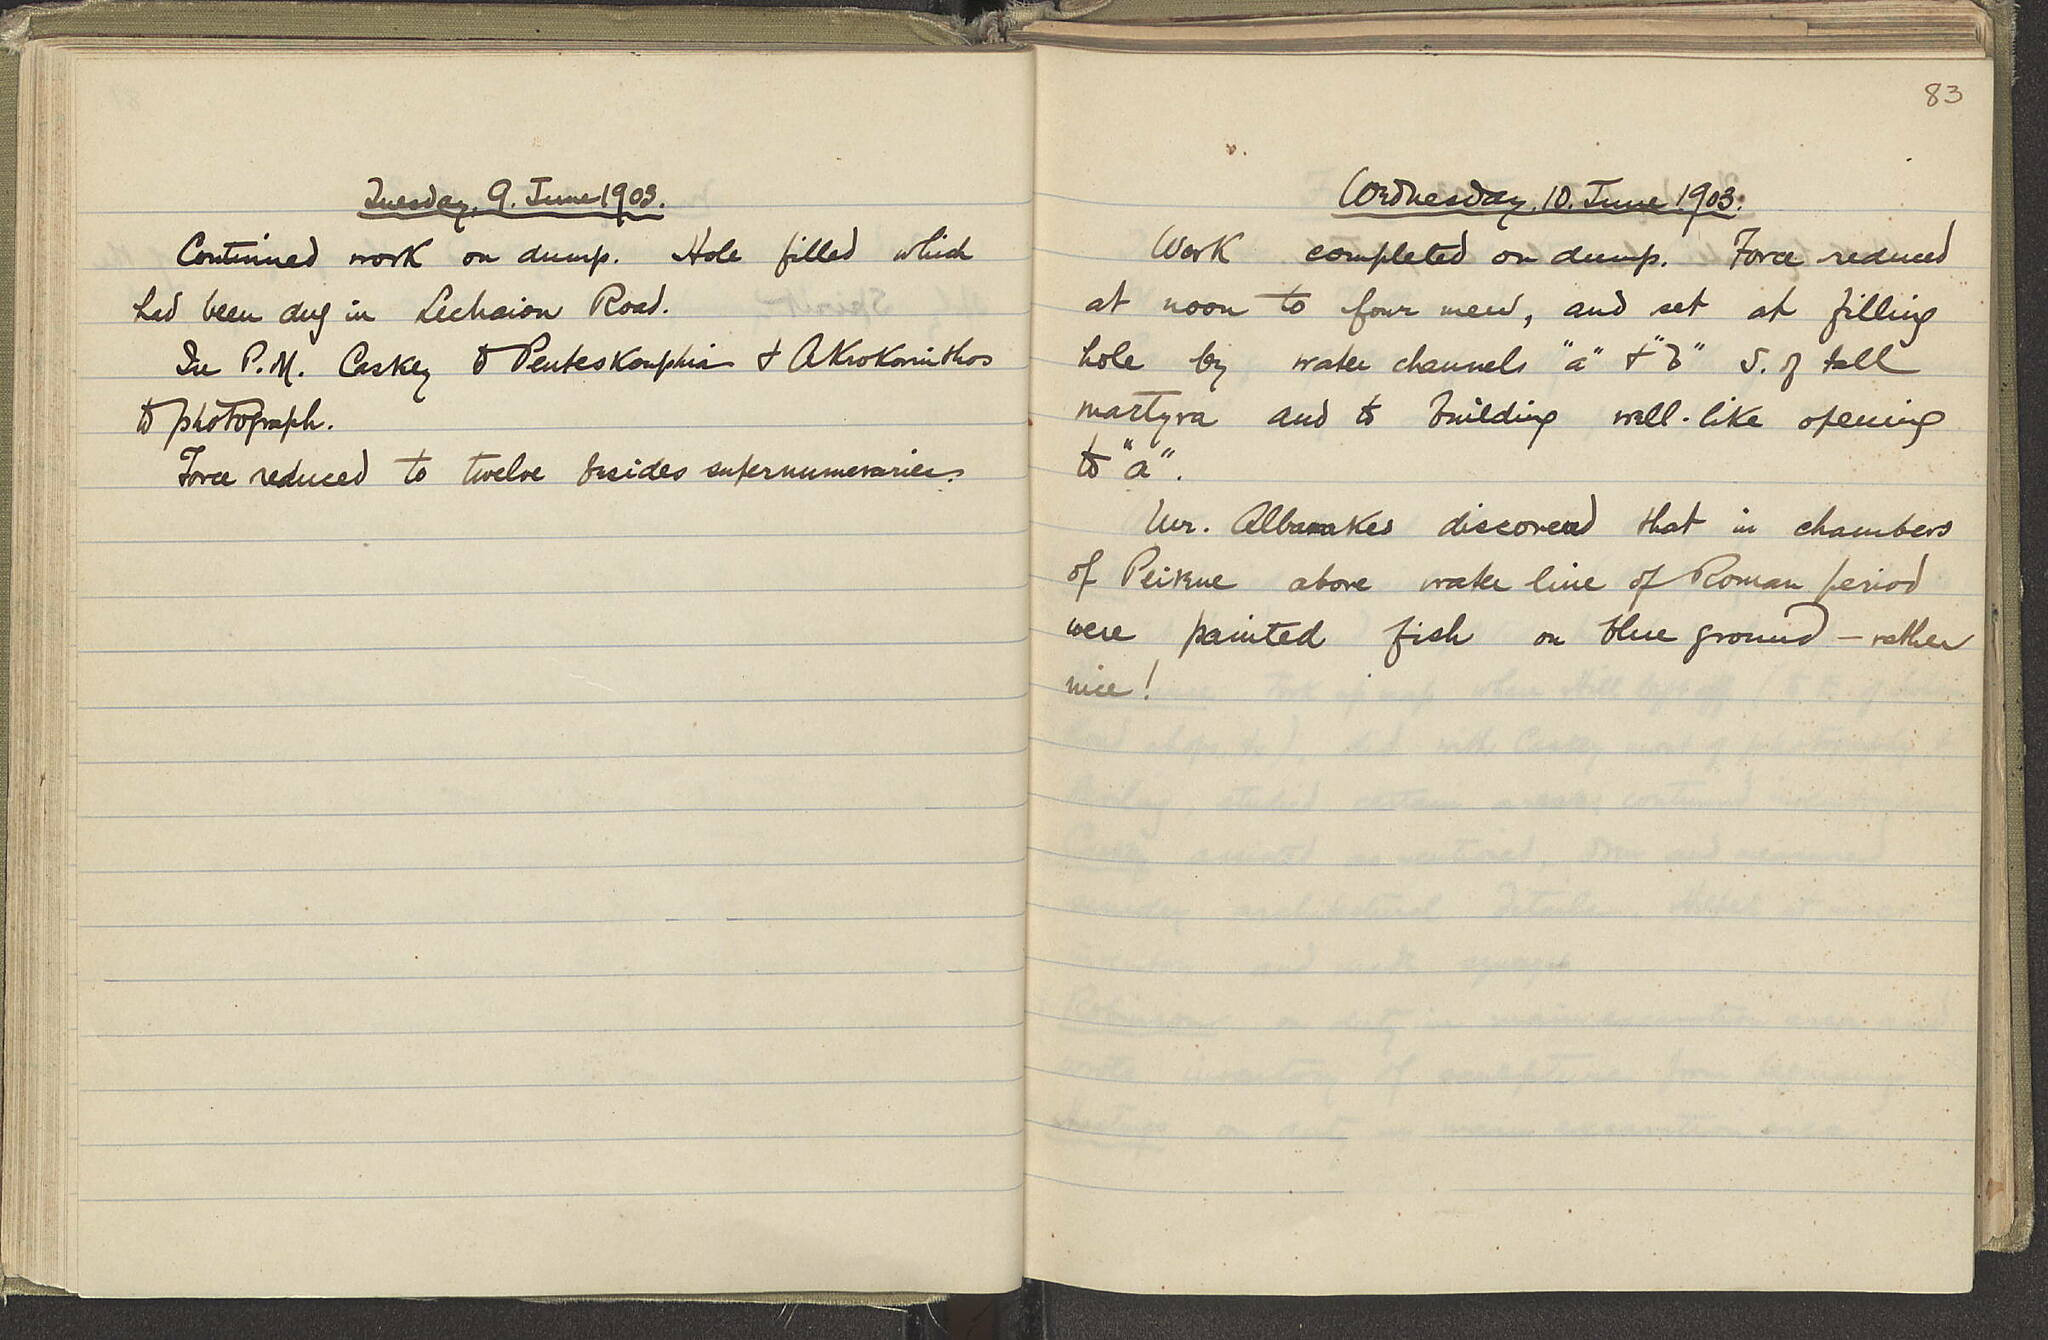 Tuesday, 9. June 1903.
Continued work on dump. Hole filled which
had been dug in Lechaion Road.
In P.M. Caskey to Penteskouphia & Akrokorinthos
to photograph.
Force reduced to twelve besides supernumeraries.
83
Wednesday, 10. June 1903.
Work completed on dump. Force reduced
at noon to four men, and set at filling
hole by water channels "a" & "b" S. of tall
martyra and to building well-like opening
to "a".
Mr. Albanakes discovered that in chambers
of Peirene above water line of Roman period
were painted fish on blue ground — rather
nice!